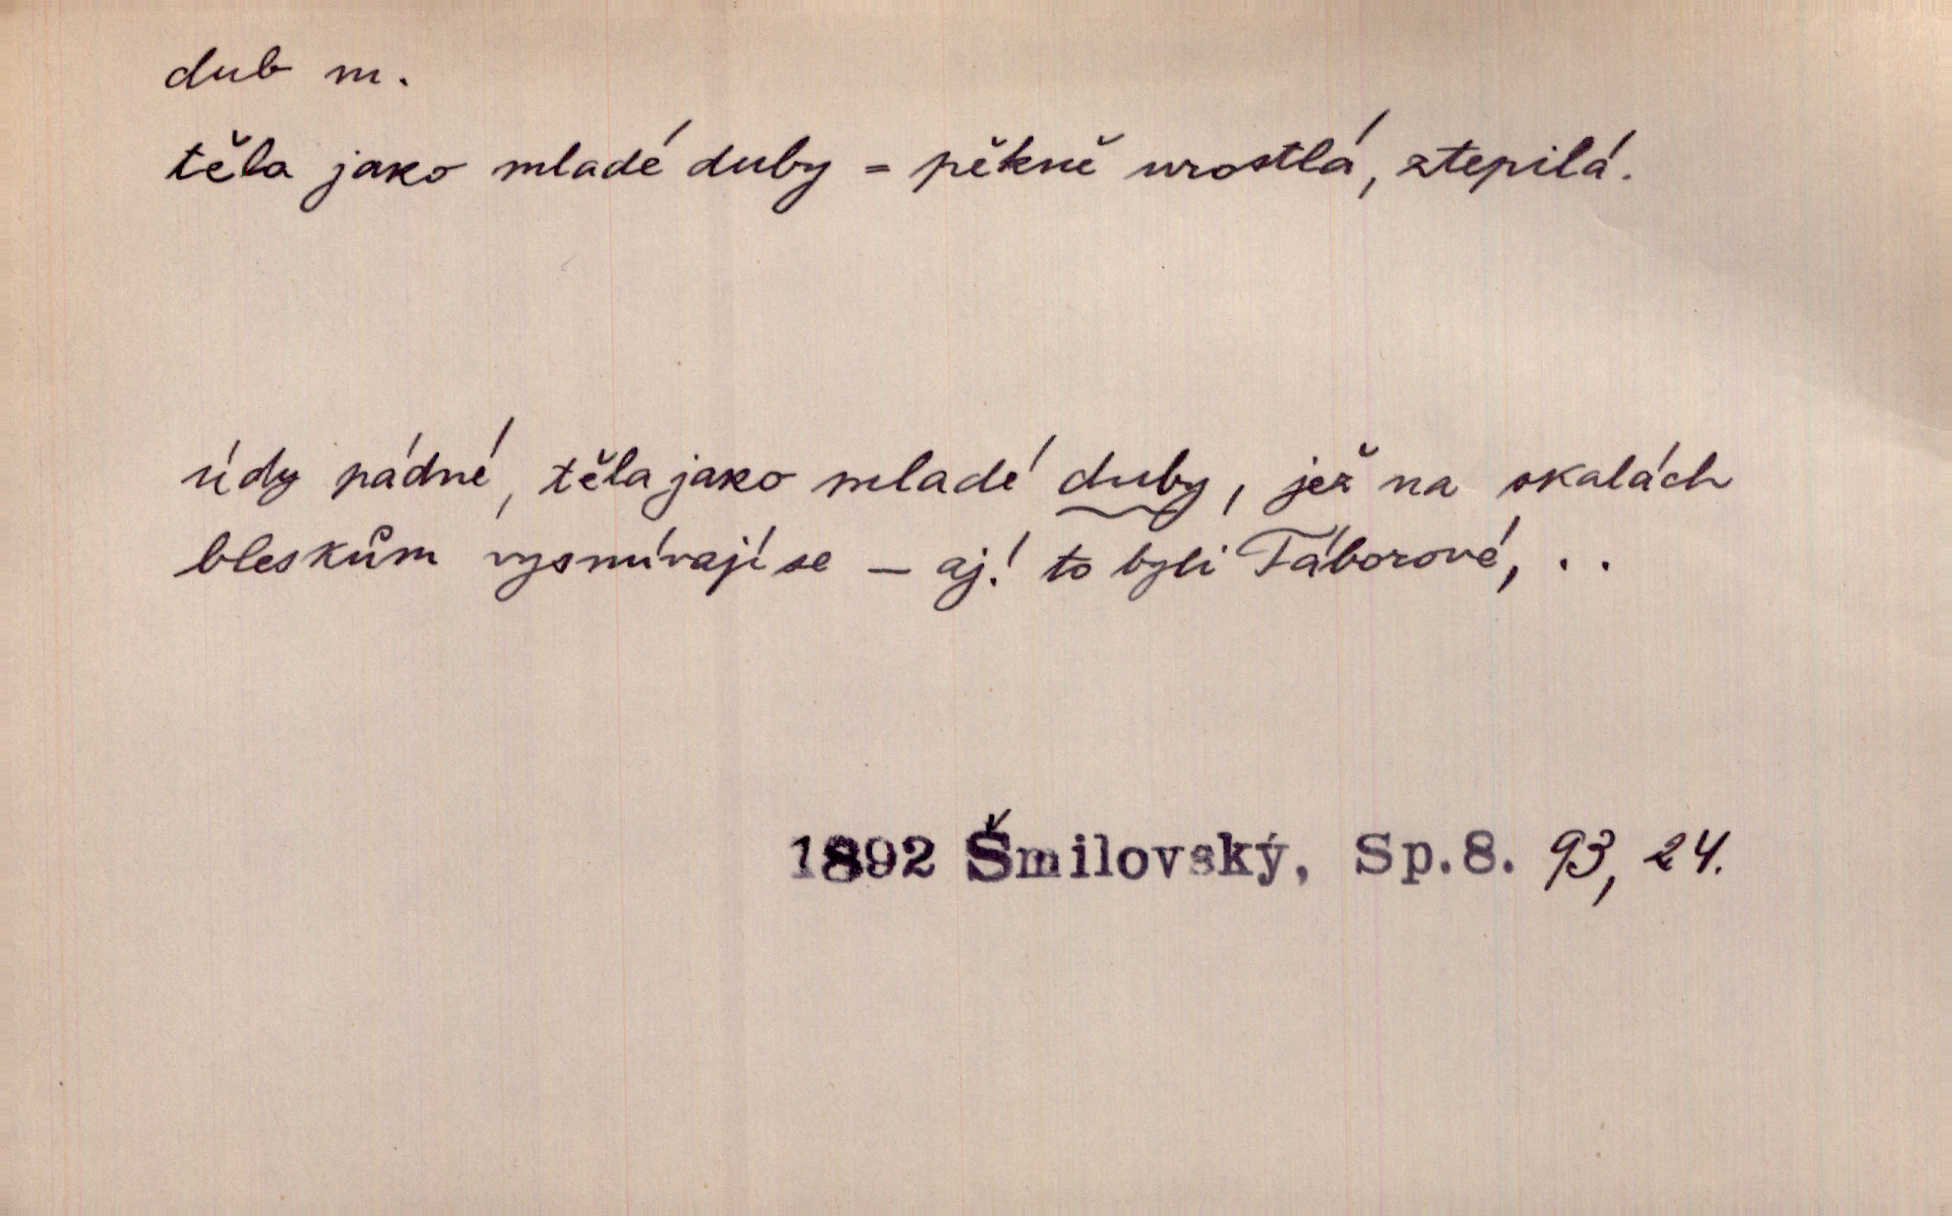 dub m.
těla jako mladé duby = pěkně urostlá, ztepilá.
údy pádné, těla jako mladé duby, jež na skalách
bleskům vysmívají se – aj! to byli Táborové, . .
1892 Šmilovský, Sp.8. 93, 24.